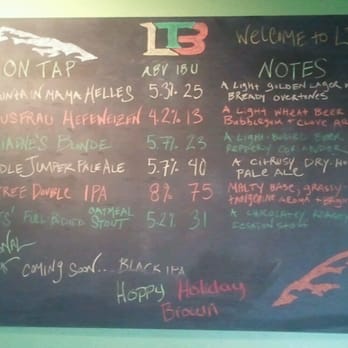 LTB
Welcome to L
ON TAP ABV IBU NOTES
MAMA HELLES 5.3% 25 A LIGHT GOLDEN LAGER
BREADY OVERTONES
HEFEWEIZEN 4.2% 13 A LIGHT WHEAT BEER
BUBBLEGUM + CLOVE
BLONDE 5.7% 23 A LIGHT-BODIED BEER
PEPPERY CORIANDER
JUMPER PALE ALE 5.7% 40 A CITRUSY, DRY-HO
PALE ALE
DOUBLE IPA 8% 75 MALTY BASE, GRASSY
TANGERINE AROMA +
FULL BODIED OATMEAL STOUT 5.2% 31 A CHOCOLATEY, ROAST
SESSION STOUT
COMING SOON... BLACK IPA
Hoppy Holiday
Brown